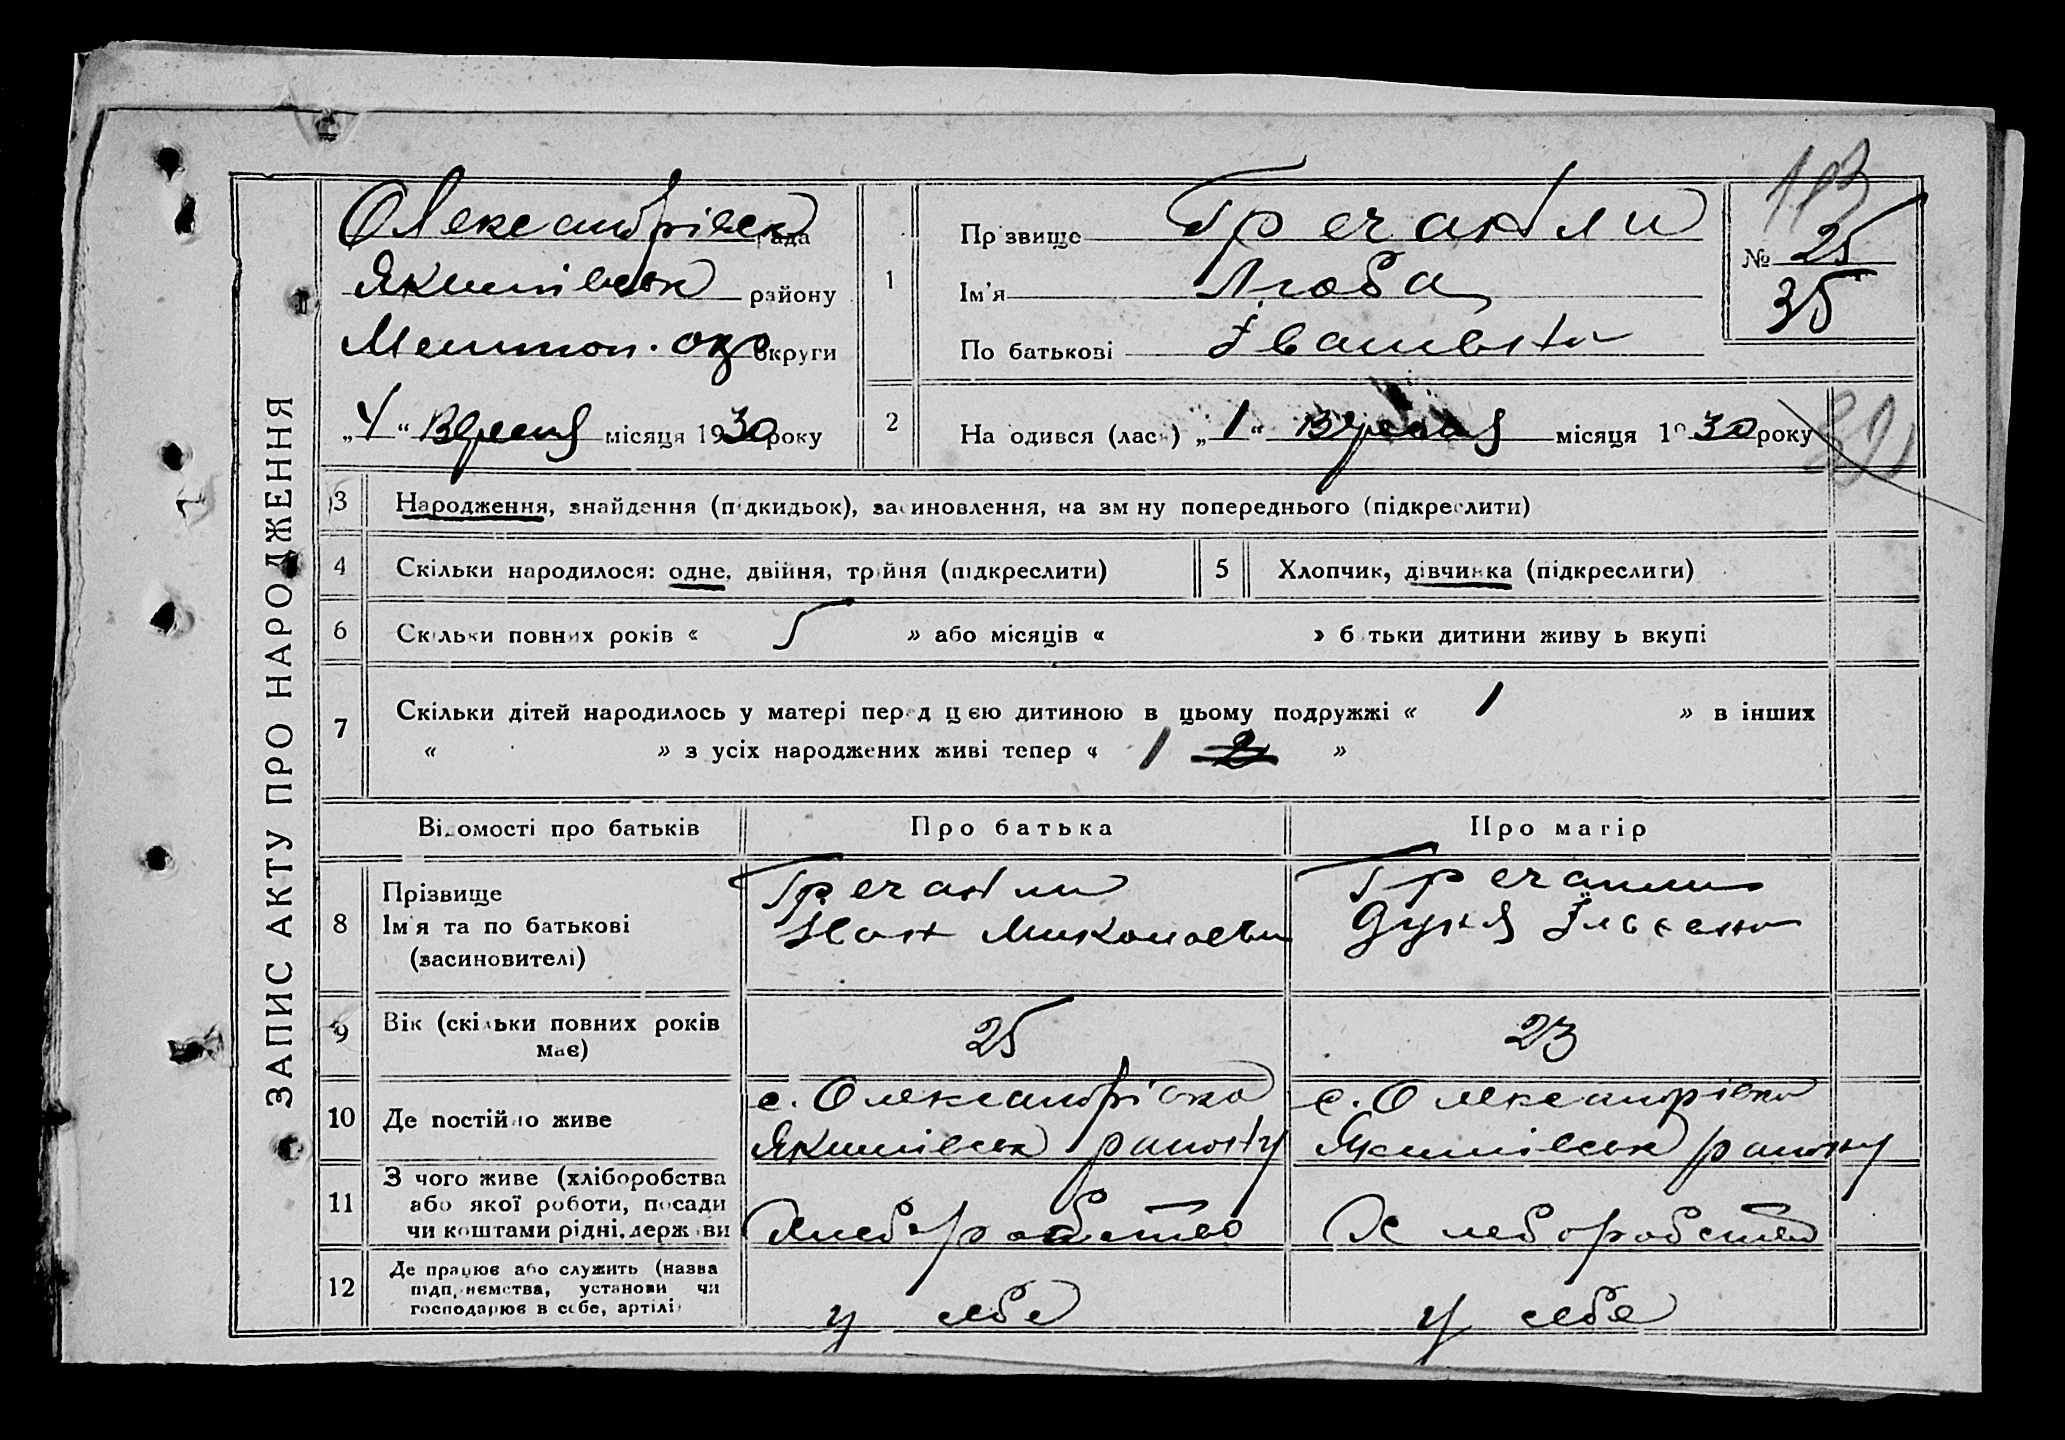 ЗАПИС АКТУ ПРО НАРОДЖЕННЯ
Олександрівськ рада
Якимівськ району
Мелитоп. окр округи
„4“ Вересня місяця 1930 року
1
Прізвище Гречаний
Ім'я Люба
По батькові Іванівна
113
№ 25
35
2
На одився (лась) „1“ Вересня місяця 1930 року
3 Народження, знайдення (підкидьок), засиновлення, на зміну попереднього (підкреслити)
4 Скільки народилося: одне, двійня, трійня (підкреслити)
5 Хлопчик, дівчинка (підкреслити)
6 Скільки повних років « 5 » або місяців « » батьки дитини живуть вкупі
7 Скільки дітей народилось у матері перед цією дитиною в цьому подружжі « 1 » в інших
« » з усіх народжених живі тепер « 1 2 »
Відомості про батьків Про батька Про матір
8 Прізвище
Ім'я та по батькові
(засиновителі)
Іван Миколаєвич
9 Вік (скільки повних років
має)
25 23
10 Де постійно живе
с. Олександрівка
Якимівськ району
с. Олександрівка
Якимівськ району
11 З чого живе (хліборобства
або якої роботи, посади
чи коштами рідні, держави
Хлеборобство Хлеборобство
12 Де працює або служить (назва
підприємства, установи чи
господарює в себе, артілі)
у себе у себе